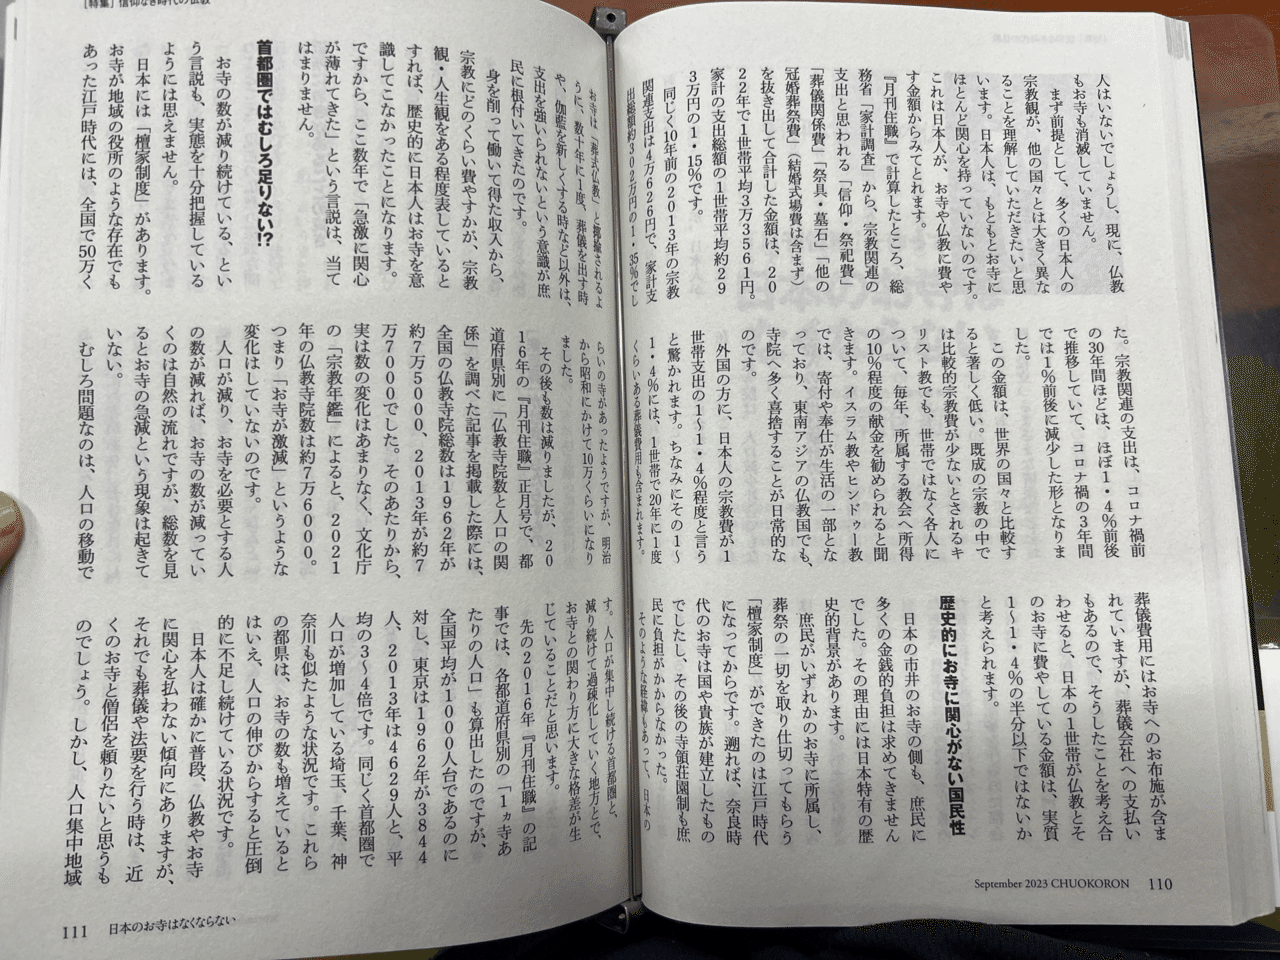 人はいないでしょうし、現に、仏教
もお寺も消滅していません。
まず前提として、多くの日本人の
宗教観が、他の国々とは大きく異な
ることを理解していただきたいと思
います。日本人は、もともとお寺に
ほとんど関心を持っていないのです。
これは日本人が、お寺や仏教に費や
す金額からみてとれます。
『月刊住職』で計算したところ、総
務省「家計調査」から、宗教関連の
支出と思われる「信仰・祭祀費」
「葬儀関係費」「祭具・墓石」「他の
冠婚葬祭費」(結婚式場費は含まず)
を抜き出して合計した金額は、20
22年で1世帯平均3万3561円。
家計の支出総額の1世帯平均約29
3万円の1・15%です。
同じく10年前の2013年の宗教
関連支出は4万626円で、家計支
出総額約302万円の1・35%でし
た。宗教関連の支出は、コロナ禍前
の30年間ほどは、ほぼ1・4%前後
で推移していて、コロナ禍の3年間
では1%前後に減少した形となりま
した。
この金額は、世界の国々と比較す
ると著しく低い。既成の宗教の中で
は比較的宗教費が少ないとされるキ
リスト教でも、世帯ではなく各人に
ついて、毎年、所属する教会へ所得
の10%程度の献金を勧められると聞
きます。イスラム教やヒンドゥー教
では、寄付や奉仕が生活の一部とな
っており、東南アジアの仏教国でも、
寺院へ多く喜捨することが日常的な
のです。
外国の方に、日本人の宗教費が1
世帯支出の1〜1・4%程度と言う
と驚かれます。ちなみにその1〜
1・4%には、1世帯で20年に1度
くらいある葬儀費用も含まれます。
葬儀費用にはお寺へのお布施が含ま
れていますが、葬儀会社への支払い
もあるので、そうしたことを考え合
わせると、日本の1世帯が仏教とそ
のお寺に費やしている金額は、実質
1〜1・4%の半分以下ではないか
と考えられます。
歴史的にお寺に関心がない国民性
日本の市井のお寺の側も、庶民に
多くの金銭的負担は求めてきません
でした。その理由には日本特有の歴
史的背景があります。
庶民がいずれかのお寺に所属し、
葬祭の一切を取り仕切ってもらう
「檀家制度」ができたのは江戸時代
になってからです。遡れば、奈良時
代のお寺は国や貴族が建立したもの
でしたし、その後の寺領荘園制も庶
民に負担がかからなかった。
そのような経緯もあって、日本の
September 2023 CHUOKORON 110
[特集] 信仰なき時代の仏教
お寺は「葬式仏教」と揶揄されるよ
うに、数十年に1度、葬儀を出す時
や、伽藍を新しくする時など以外は、
支出を強いられないという意識が庶
民に根付いてきたのです。
身を削って働いて得た収入から、
宗教にどのくらい費やすかが、宗教
観・人生観をある程度表していると
すれば、歴史的に日本人はお寺を意
識してこなかったことになります。
ですから、ここ数年で「急激に関心
が薄れてきた」という言説は、当て
はまりません。
首都圏ではむしろ足りない!?
お寺の数が減り続けている、とい
う言説も、実態を十分把握している
ようには思えません。
日本には「檀家制度」があります。
お寺が地域の役所のような存在でも
あった江戸時代には、全国で50万く
らいの寺があったようですが、明治
から昭和にかけて10万くらいになり
ました。
その後も数は減りましたが、20
16年の『月刊住職』正月号で、都
道府県別に「仏教寺院数と人口の関
係」を調べた記事を掲載した際には、
全国の仏教寺院総数は1962年が
約7万5000、2013年が約7
万7000でした。そのあたりから、
実は数の変化はあまりなく、文化庁
の「宗教年鑑」によると、2021
年の仏教寺院数は約7万6000。
つまり「お寺が激減」というような
変化はしていないのです。
人口が減り、お寺を必要とする人
の数が減れば、お寺の数が減ってい
くのは自然の流れですが、総数を見
るとお寺の急減という現象は起きて
いない。
むしろ問題なのは、人口の移動で
す。人口が集中し続ける首都圏と、
減り続けて過疎化していく地方とで、
お寺との関わり方に大きな格差が生
じていることだと思います。
先の2016年『月刊住職』の記
事では、各都道府県別の「1ヵ寺あ
たりの人口」も算出したのですが、
全国平均が1000人台であるのに
対し、東京は1962年が3844
人、2013年は4629人と、平
均の3〜4倍です。同じく首都圏で
人口が増加している埼玉、千葉、神
奈川も似たような状況です。これら
の都県は、お寺の数も増えていると
はいえ、人口の伸びからすると圧倒
的に不足し続けている状況です。
日本人は確かに普段、仏教やお寺
に関心を払わない傾向にありますが、
それでも葬儀や法要を行う時は、近
くのお寺と僧侶を頼りたいと思うも
のでしょう。しかし、人口集中地域
111 日本のお寺はなくならない